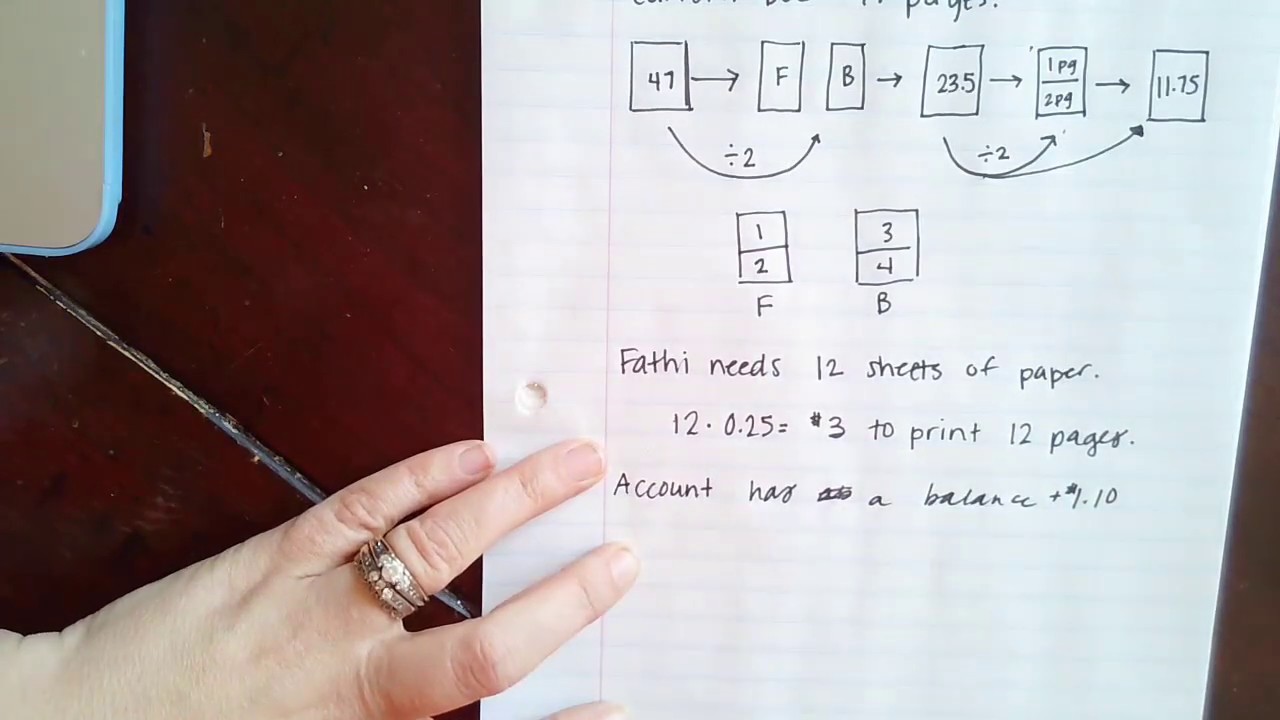 pages.
47 → F B → 23.5 → 1pg 2pg → 11.75
÷2 ÷2
1 3
2 4
F B
Fathi needs 12 sheets of paper.
12 · 0.25 = $3 to print 12 pages.
Account has a balance + $1.10